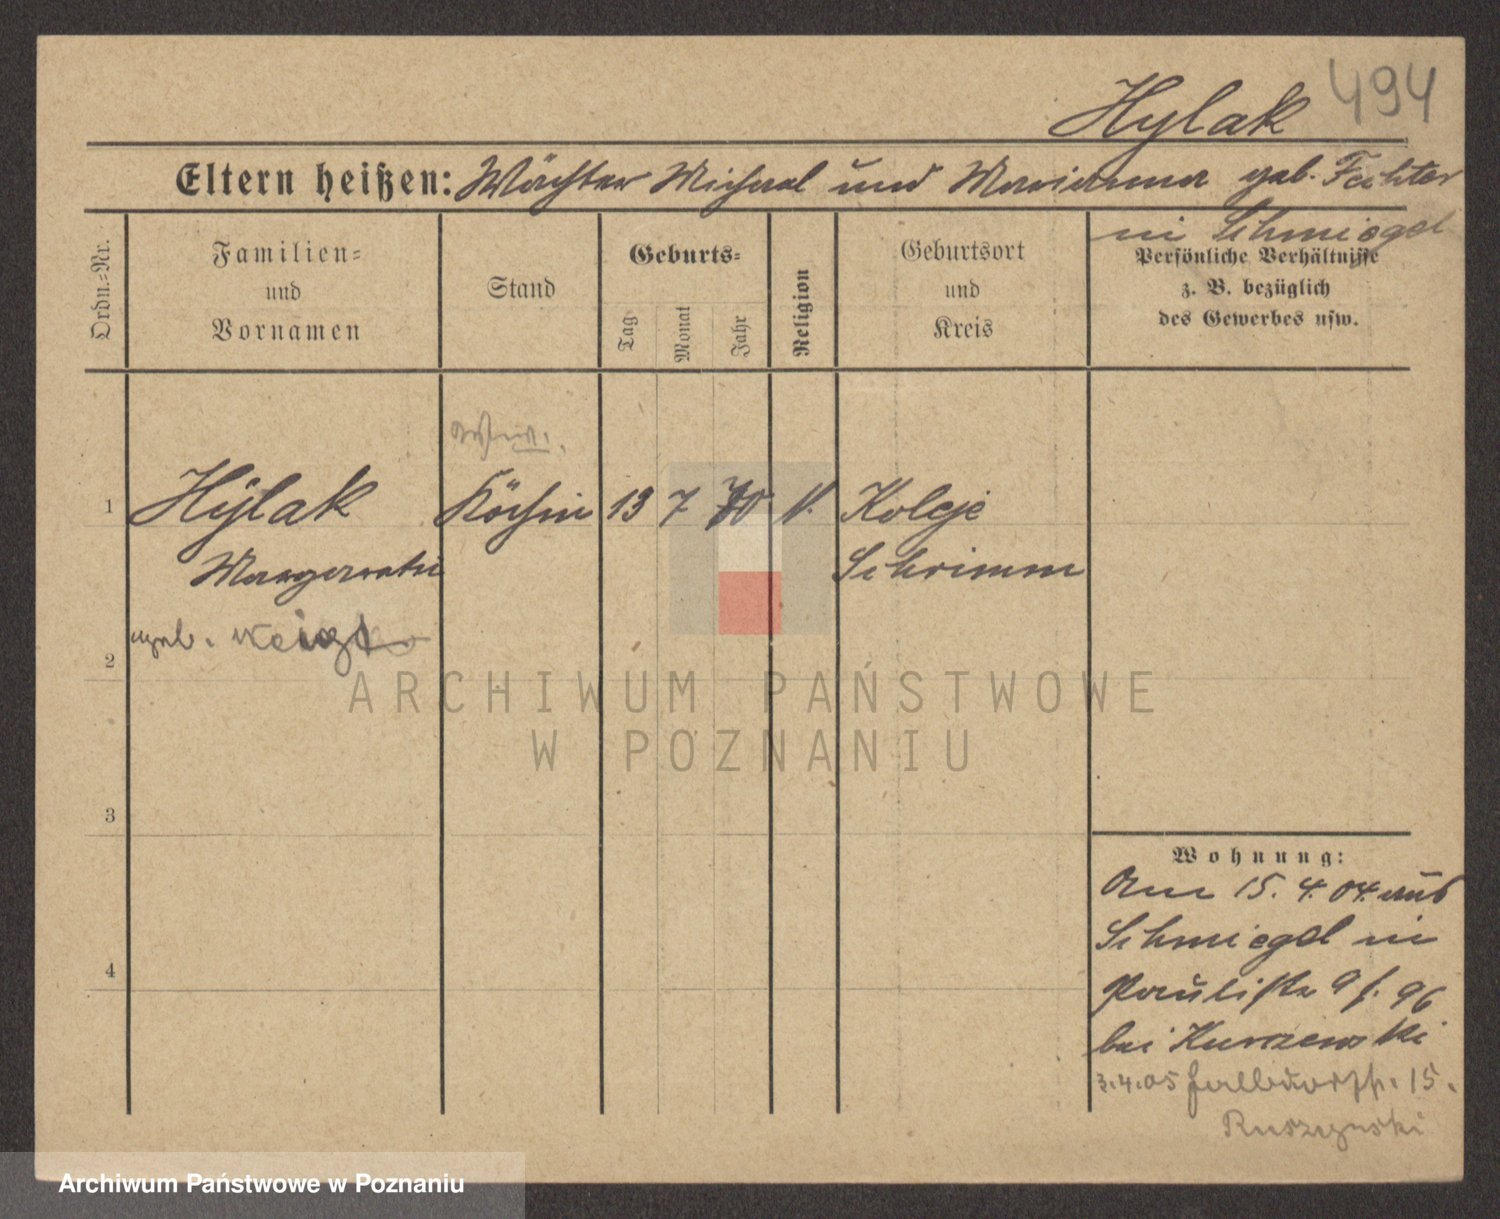 Hylak 494
Eltern heißen: Wächter Michael und Marianna geb. Fechter
in Schmiegel
Ordn.=Nr.
Familien=
und
Vornamen
Stand
Geburts=
Tag
Monat
Jahr
Religion
Geburtsort
und
Kreis
Persönliche Verhältnisse
z. B. bezüglich
des Gewerbes usw.
1 Hylak Köchin 13 7 70 k. Koleje
Margarethe Schrimm
geb.
2
3
4
Wohnung:
Am 15. 4. 04. aus
Schmiegel in
Paulistr 9 f. 96
bei Kurzewski
3.4.05 15.
Ruszynski
ARCHIWUM PAŃSTWOWE
W POZNANIU
Archiwum Państwowe w Poznaniu